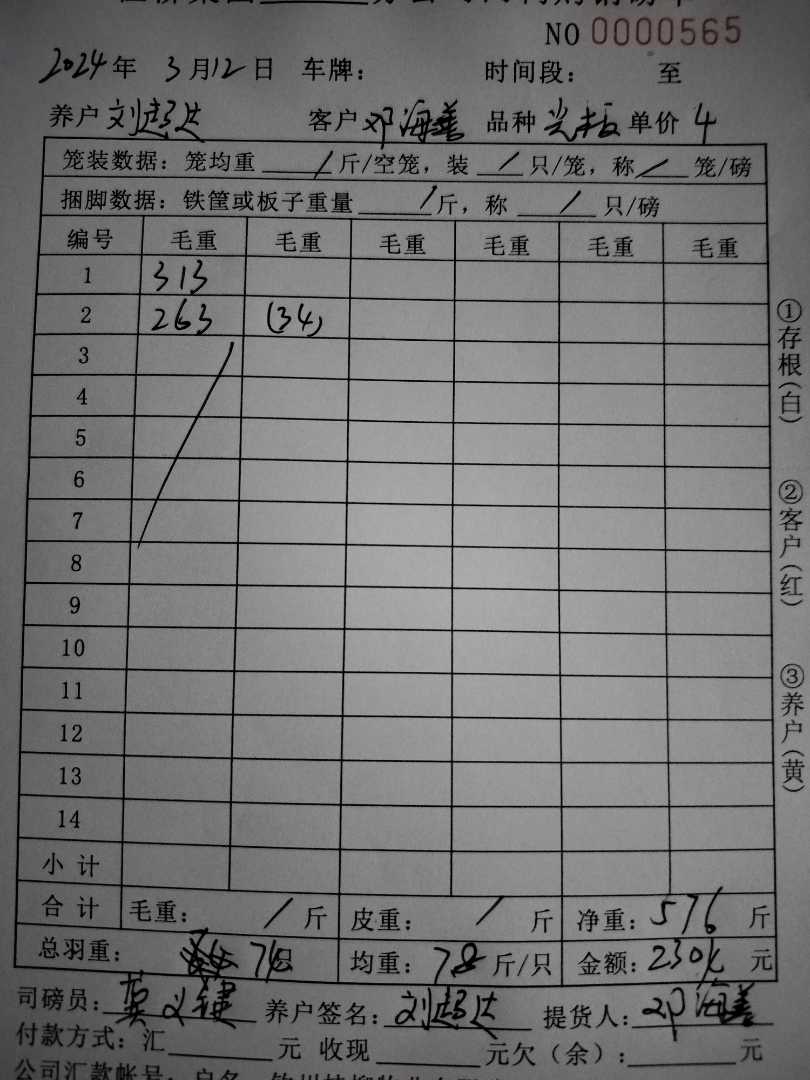 NO 0000565
2024年 3月12日 车牌: 时间段: 至
养户 刘超达 客户 邓海善 品种 光板 单价 4
笼装数据: 笼均重 / 斤/空笼, 装 / 只/笼, 称 / 笼/磅
捆脚数据: 铁筐或板子重量 / 斤, 称 / 只/磅
编号 毛重 毛重 毛重 毛重 毛重 毛重
1 313
2 263 (34)
3
4
5
6
7
8
9
10
11
12
13
14
小计
合计 毛重: / 斤 皮重: / 斤 净重: 576 斤
总羽重: 74只 均重: 7.8 斤/只 金额: 2304 元
司磅员: 莫义健 养户签名: 刘超达 提货人: 邓海善
付款方式: 汇 元 收现 元欠(余): 元
公司汇款帐号: 户名
①存根(白)
②客户(红)
③养户(黄)